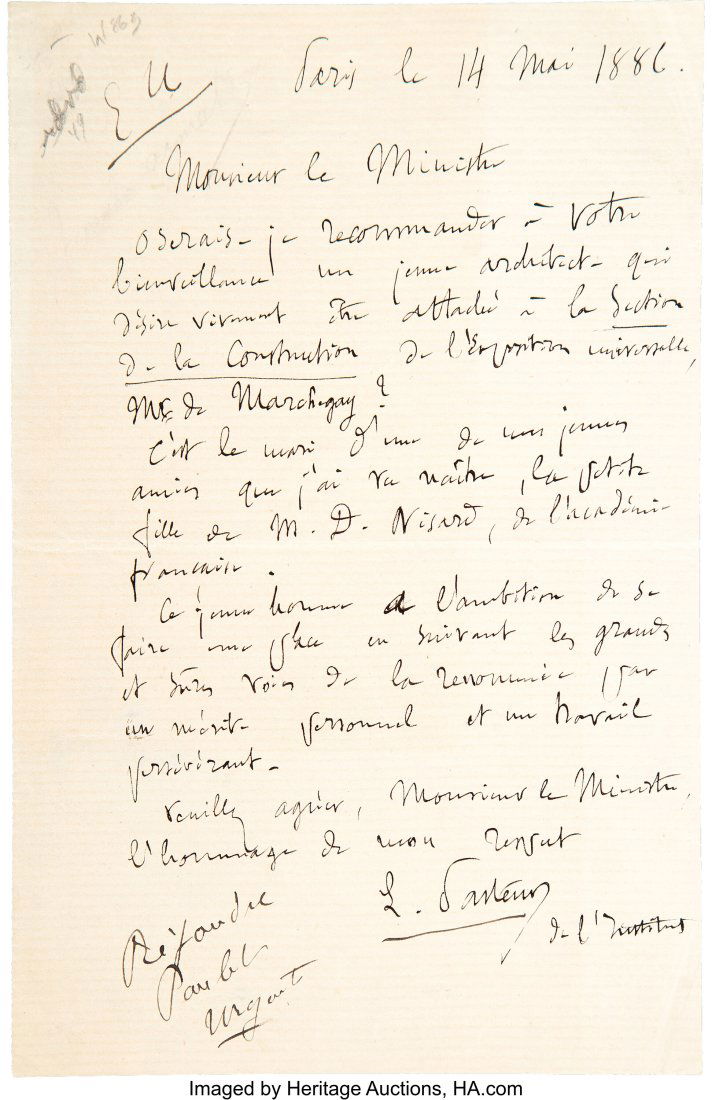 E U
Paris le 14 Mai 1886.
Monsieur le Ministre
Oserais-je recommander à votre
bienveillance un jeune architecte qui
désire vivement être attaché à la Section
de la Construction de l'Exposition universelle,
Mr de Marchegay ?
C'est le mari d'une de mes jeunes
amies que j'ai vu naître, la petite
fille de M. D. Nisard, de l'académie
française.
Ce jeune homme a l'ambition de se
faire une place en suivant les grandes
et sûres voies de la renommée par
un mérite personnel et un travail
persévérant.
Veuillez agréer, Monsieur le Ministre,
l'hommage de mon respect
L. Pasteur
de l'Institut
Répondre
Urgent
Imaged by Heritage Auctions, HA.com